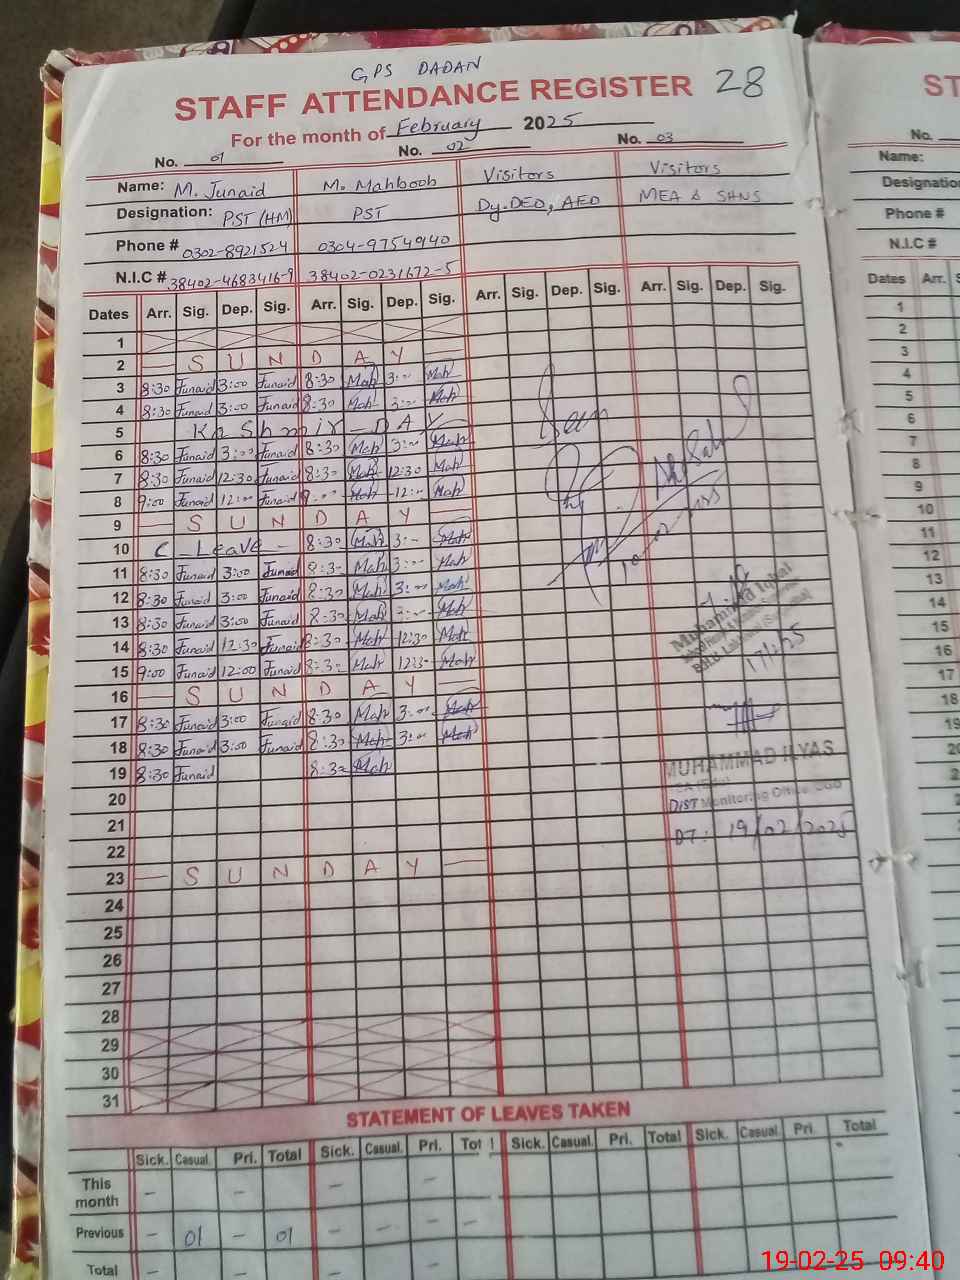 GPS DADAN
STAFF ATTENDANCE REGISTER 28
For the month of February 2025
No. 01 No. 02 No. 03
Name: M. Junaid M. Mahboob Visitors Visitors
Designation: PST (HM) PST Dy.DEO, AEO MEA & SHNS
Phone # 0302-8921524 0304-9754940
N.I.C # 38402-4683416-9 38402-0231672-5
Dates Arr. Sig. Dep. Sig. Arr. Sig. Dep. Sig. Arr. Sig. Dep. Sig. Arr. Sig. Dep. Sig.
1
2 S U N D A Y
3 8:30 Junaid 3:00 Junaid 8:30 Mah 3:00 Mah
4 8:30 Junaid 3:00 Junaid 8:30 Mah 3:00 Mah
5 Kashmir - DAY
6 8:30 Junaid 3:00 Junaid 8:30 Mah 3:00 Mah
7 8:30 Junaid 12:30 Junaid 8:30 Mah 12:30 Mah
8 9:00 Junaid 12:00 Junaid 9:00 Mah 12:00 Mah
9 S U N D A Y
10 C - Leave - 8:30 Mah 3:00 Mah
11 8:30 Junaid 3:00 Junaid 8:30 Mah 3:00 Mah
12 8:30 Junaid 3:00 Junaid 8:30 Mah 3:00 Mah
13 8:30 Junaid 3:00 Junaid 8:30 Mah 3:00 Mah
14 8:30 Junaid 12:30 Junaid 8:30 Mah 12:30 Mah
15 9:00 Junaid 12:00 Junaid 8:30 Mah 12:30 Mah
16 S U N D A Y
17 8:30 Junaid 3:00 Junaid 8:30 Mah 3:00 Mah
18 8:30 Junaid 3:00 Junaid 8:30 Mah 3:00 Mah
19 8:30 Junaid 8:30 Mah
20
21
22
23 S U N D A Y
24
25
26
27
28
29
30
31
Muhammad Iqbal
17/2/25
MUHAMMAD ILYAS
DIST Monitoring Office
DT: 19/02/2025
STATEMENT OF LEAVES TAKEN
Sick. Casual. Pri. Total Sick. Casual. Pri. Tot Sick. Casual. Pri. Total Sick. Casual. Pri. Total
This month - - - -
Previous - 01 - 01 - - - -
Total - -
ST
No.
Name:
Designation
Phone #
N.I.C #
Dates Arr. S
1
2
3
4
5
6
7
8
9
10
11
12
13
14
15
16
17
18
19
20
19-02-25 09:40